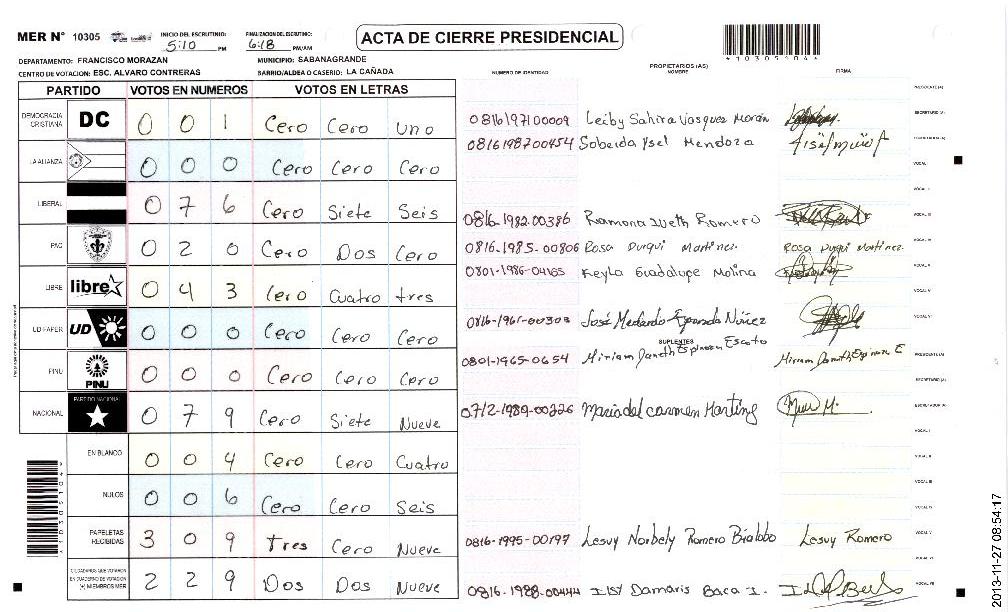 MER N° 10305 INICIO DEL ESCRUTINIO: 5:10 PM FINALIZACION DEL ESCRUTINIO: 6:18 PM/AM ACTA DE CIERRE PRESIDENCIAL
DEPARTAMENTO: FRANCISCO MORAZAN MUNICIPIO: SABANAGRANDE
CENTRO DE VOTACION: ESC. ALVARO CONTRERAS BARRIO/ALDEA O CASERIO: LA CAÑADA
NUMERO DE IDENTIDAD PROPIETARIOS (AS) NOMBRE FIRMA
PARTIDO VOTOS EN NUMEROS VOTOS EN LETRAS
DEMOCRACIA CRISTIANA DC 0 0 1 Cero Cero Uno
LA ALIANZA 0 0 0 Cero Cero Cero
LIBERAL 0 7 6 Cero Siete Seis
PAC 0 2 0 Cero Dos Cero
LIBRE libre 0 4 3 Cero Cuatro tres
UD FAPER UD 0 0 0 Cero Cero Cero
PINU PINU 0 0 0 Cero Cero Cero
NACIONAL PARTIDO NACIONAL 0 7 9 Cero Siete Nueve
EN BLANCO 0 0 4 Cero Cero Cuatro
NULOS 0 0 6 Cero Cero Seis
PAPELETAS RECIBIDAS 3 0 9 tres Cero Nueve
CIUDADANOS QUE VOTARON EN CUADERNO DE VOTACION (+) MIEMBROS MER 2 2 9 Dos Dos Nueve
0816197100009 Leiby Sahira Vasquez Morán
0816198700454 Sobeida Ysel Mendoza
0816-1982-00386 Ramona Iveth Romero
0816-1985-00806 Rosa Duqui Martinez. Rosa Duqui Martinez.
0801-1986-04165 Keyla Guadalupe Molina
0816-1961-00303 José Medardo Núñez
SUPLENTES
0801-1965-0654 Miriam Janeth Espinoza Escoto Miriam Janeth Espinoza E
0712-1989-00226 Maria del carmen Martinz
0816-1995-00197 Lesvy Norbely Romero Lesvy Romero
0816-1988-00444 Damaris Baca I.
2013-11-27 08:54:17